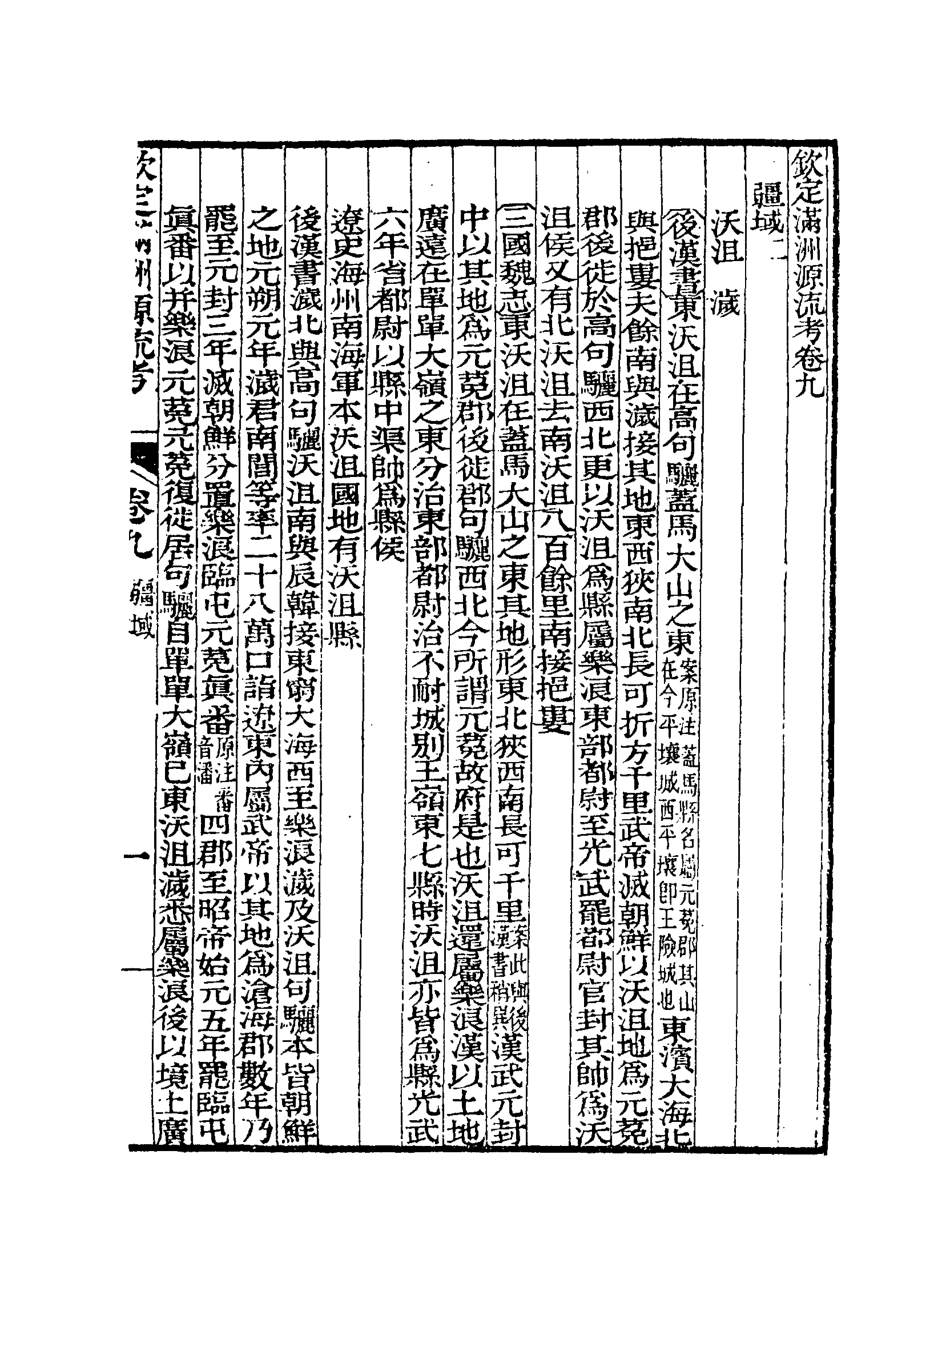 欽定滿洲源流考卷九
疆域二
沃沮 濊
後漢書東沃沮在高句驪蓋馬大山之東案原注蓋馬縣名屬元菟郡其山在今平壤城西平壤卽王險城也東濱大海北
與挹婁夫餘南與濊接其地東西狹南北長可折方千里武帝滅朝鮮以沃沮地爲元菟
郡後徙於高句驪西北更以沃沮爲縣屬樂浪東部都尉至光武罷都尉官封其帥爲沃
沮侯又有北沃沮去南沃沮八百餘里南接挹婁
三國魏志東沃沮在蓋馬大山之東其地形東北狹西南長可千里案此與後漢書稍異漢武元封
中以其地爲元菟郡後徙郡句驪西北今所謂元菟故府是也沃沮還屬樂浪漢以土地
廣遠在單單大嶺之東分治東部都尉治不耐城別主嶺東七縣時沃沮亦皆爲縣光武
六年省都尉以縣中渠帥爲縣侯
遼史海州南海軍本沃沮國地有沃沮縣
後漢書濊北與高句驪沃沮南與辰韓接東窮大海西至樂浪濊及沃沮句驪本皆朝鮮
之地元朔元年濊君南閭等率二十八萬口詣遼東內屬武帝以其地爲滄海郡數年乃
罷至元封三年滅朝鮮分置樂浪臨屯元菟眞番原注番音潘四郡至昭帝始元五年罷臨屯
眞番以并樂浪元菟元菟復徙居句驪自單單大嶺已東沃沮濊悉屬樂浪後以境土廣
欽定滿洲源流考 卷九 疆域 一